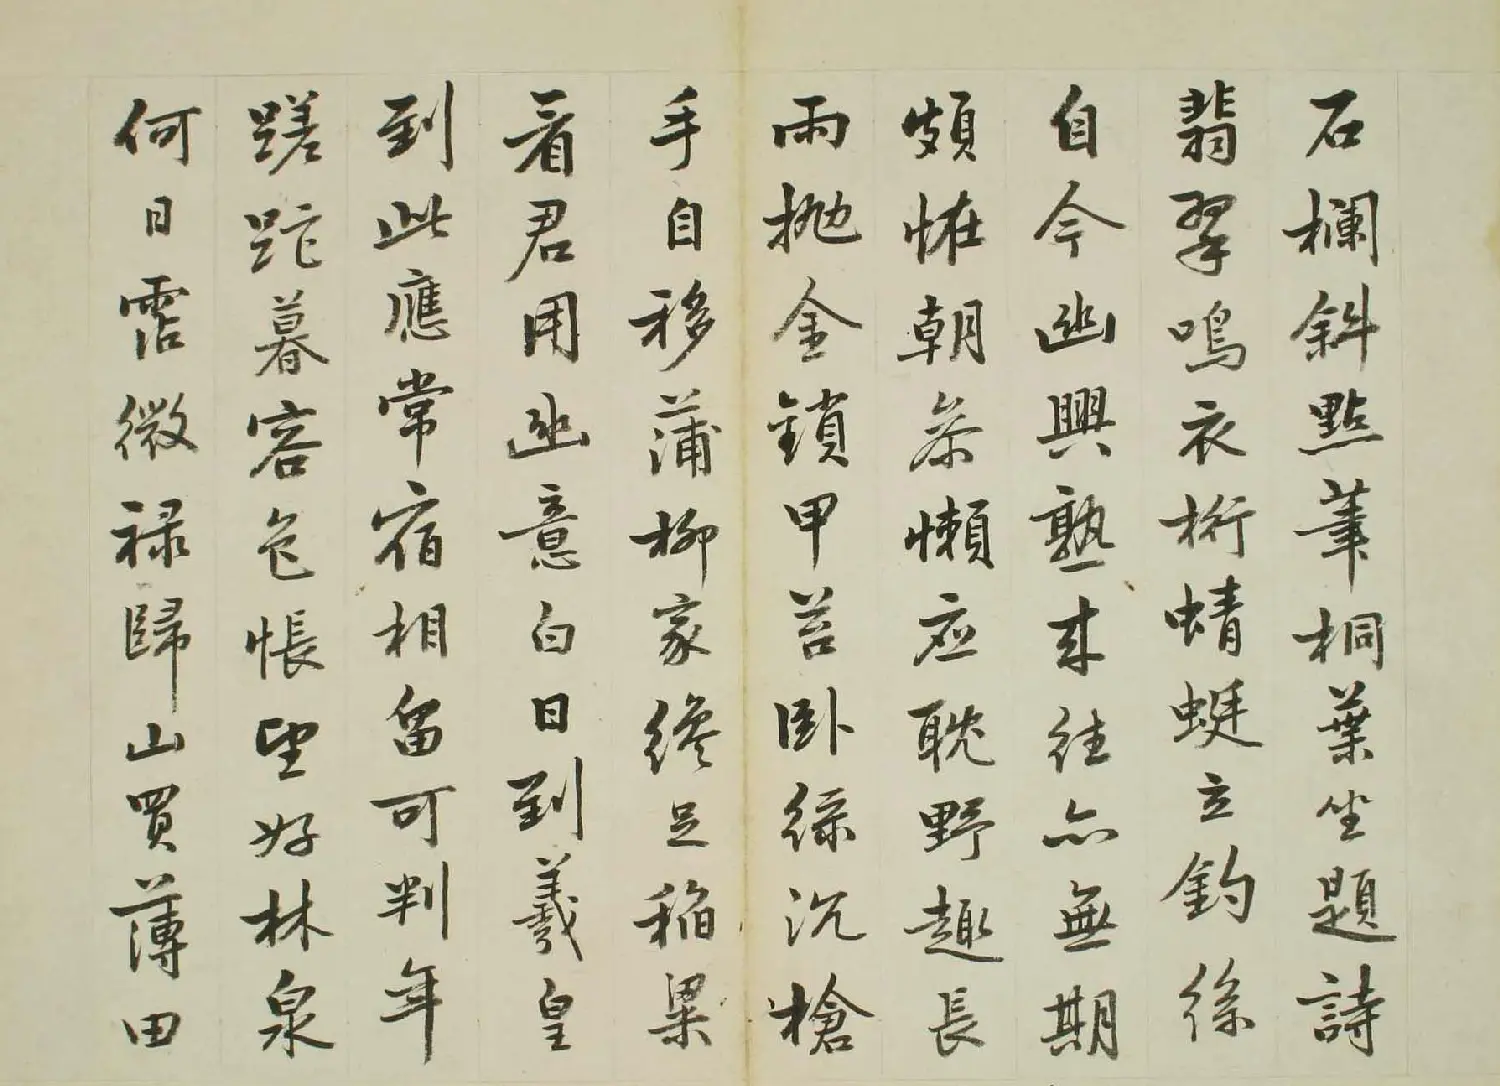 石欄斜點筆桐葉坐題詩
翡翠鳴衣桁蜻蜓立釣絲
自今幽興熟來往亦無期
頗怪朝參懶应耽野趣長
雨抛金鎖甲苔卧緑沉槍
手自移蒲柳家纔足稲粱
看君用幽意白日到羲皇
到此應常宿相留可判年
蹉跎暮容色悵望好林泉
何日霑微禄歸山買薄田